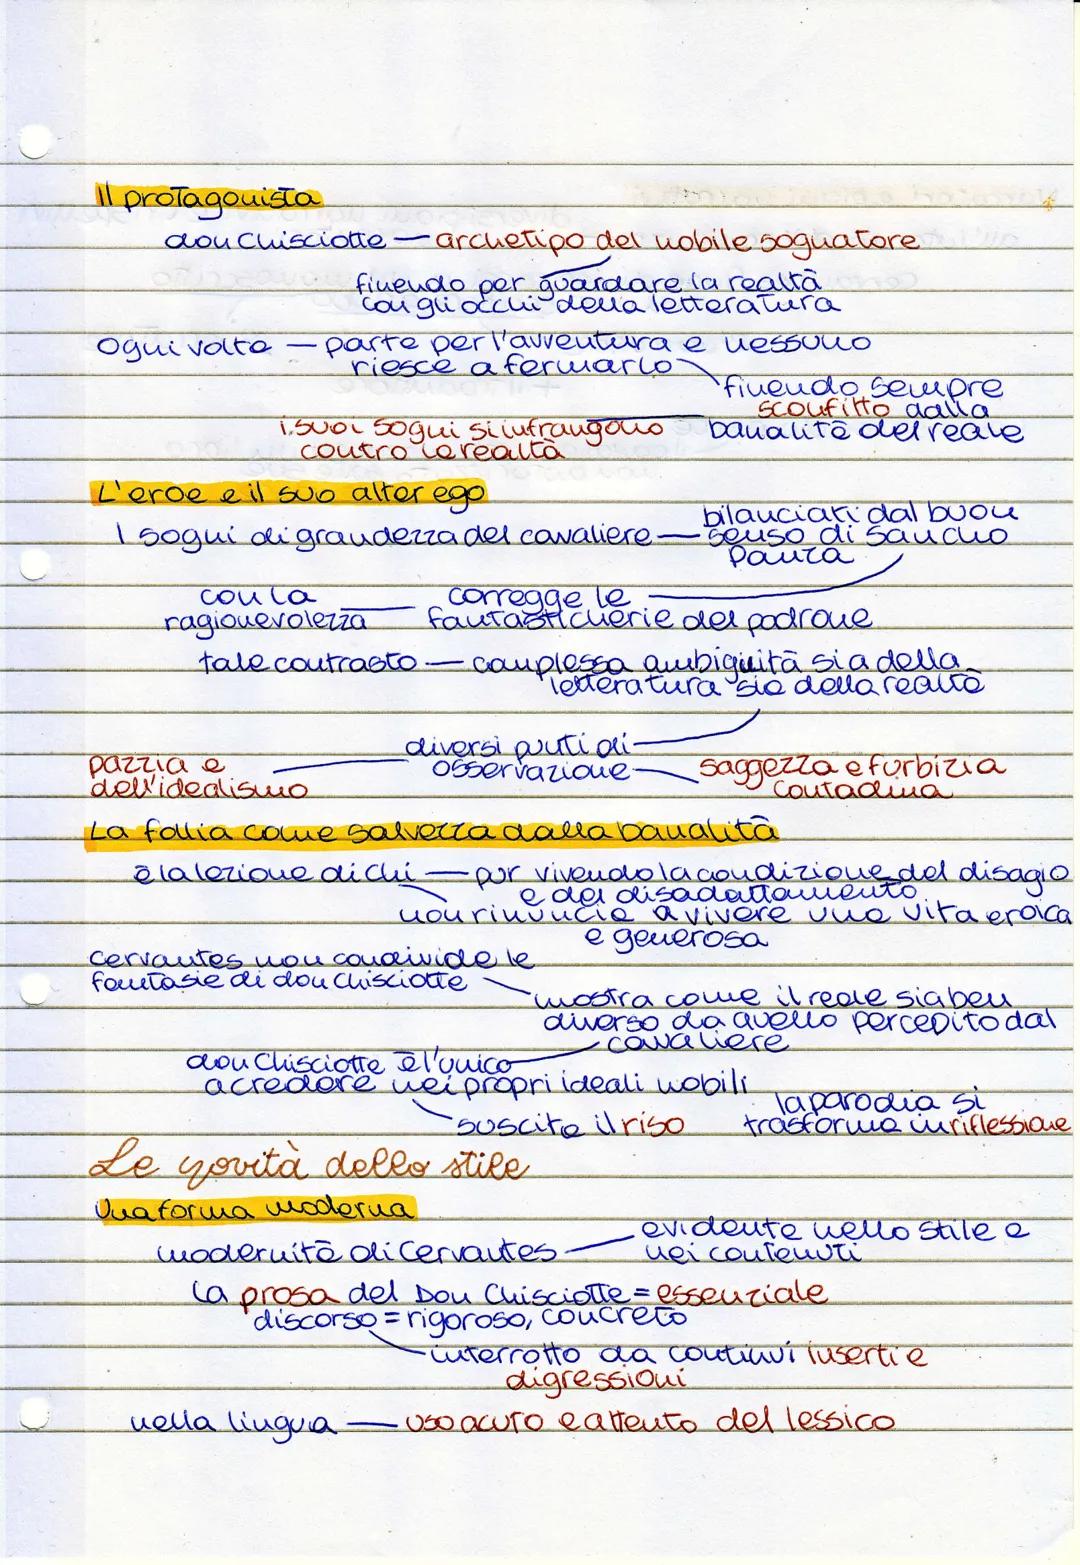 Il protagonista
don Chisciotte — archetipo del nobile sognatore
finendo per guardare la realtà
con gli occhi della letteratura
Ogni volta — parte per l'avventura e nessuno
riesce a fermarlo
finendo sempre
sconfitto dalla
i suoi sogni si infrangono banalità del reale
contro la realtà
L'eroe e il suo alter ego
bilanciati dal buon
I sogni di grandezza del cavaliere — senso di Sancho
Panza
con la corregge le
ragionevolezza fantasticherie del padrone
tale contrasto — complessa ambiguità sia della
letteratura sia della realtà
diversi punti di
pazzia e osservazione saggezza e furbizia
dell'idealismo contadina
La follia come salvezza dalla banalità
è la lezione di chi — pur vivendo la condizione del disagio
e del disadattamento
non rinuncia a vivere una vita eroica
e generosa
Cervantes non condivide le
fantasie di don Chisciotte
mostra come il reale sia ben
diverso da quello percepito dal
cavaliere
don Chisciotte è l'unico
a credere nei propri ideali nobili
la parodia si
suscita il riso trasforma in riflessione
Le novità dello stile
Una forma moderna
evidente nello stile e
modernità di Cervantes — nei contenuti
La prosa del Don Chisciotte = essenziale
discorso = rigoroso, concreto
interrotto da continui inserti e
digressioni
nella lingua — uso acuto e attento del lessico